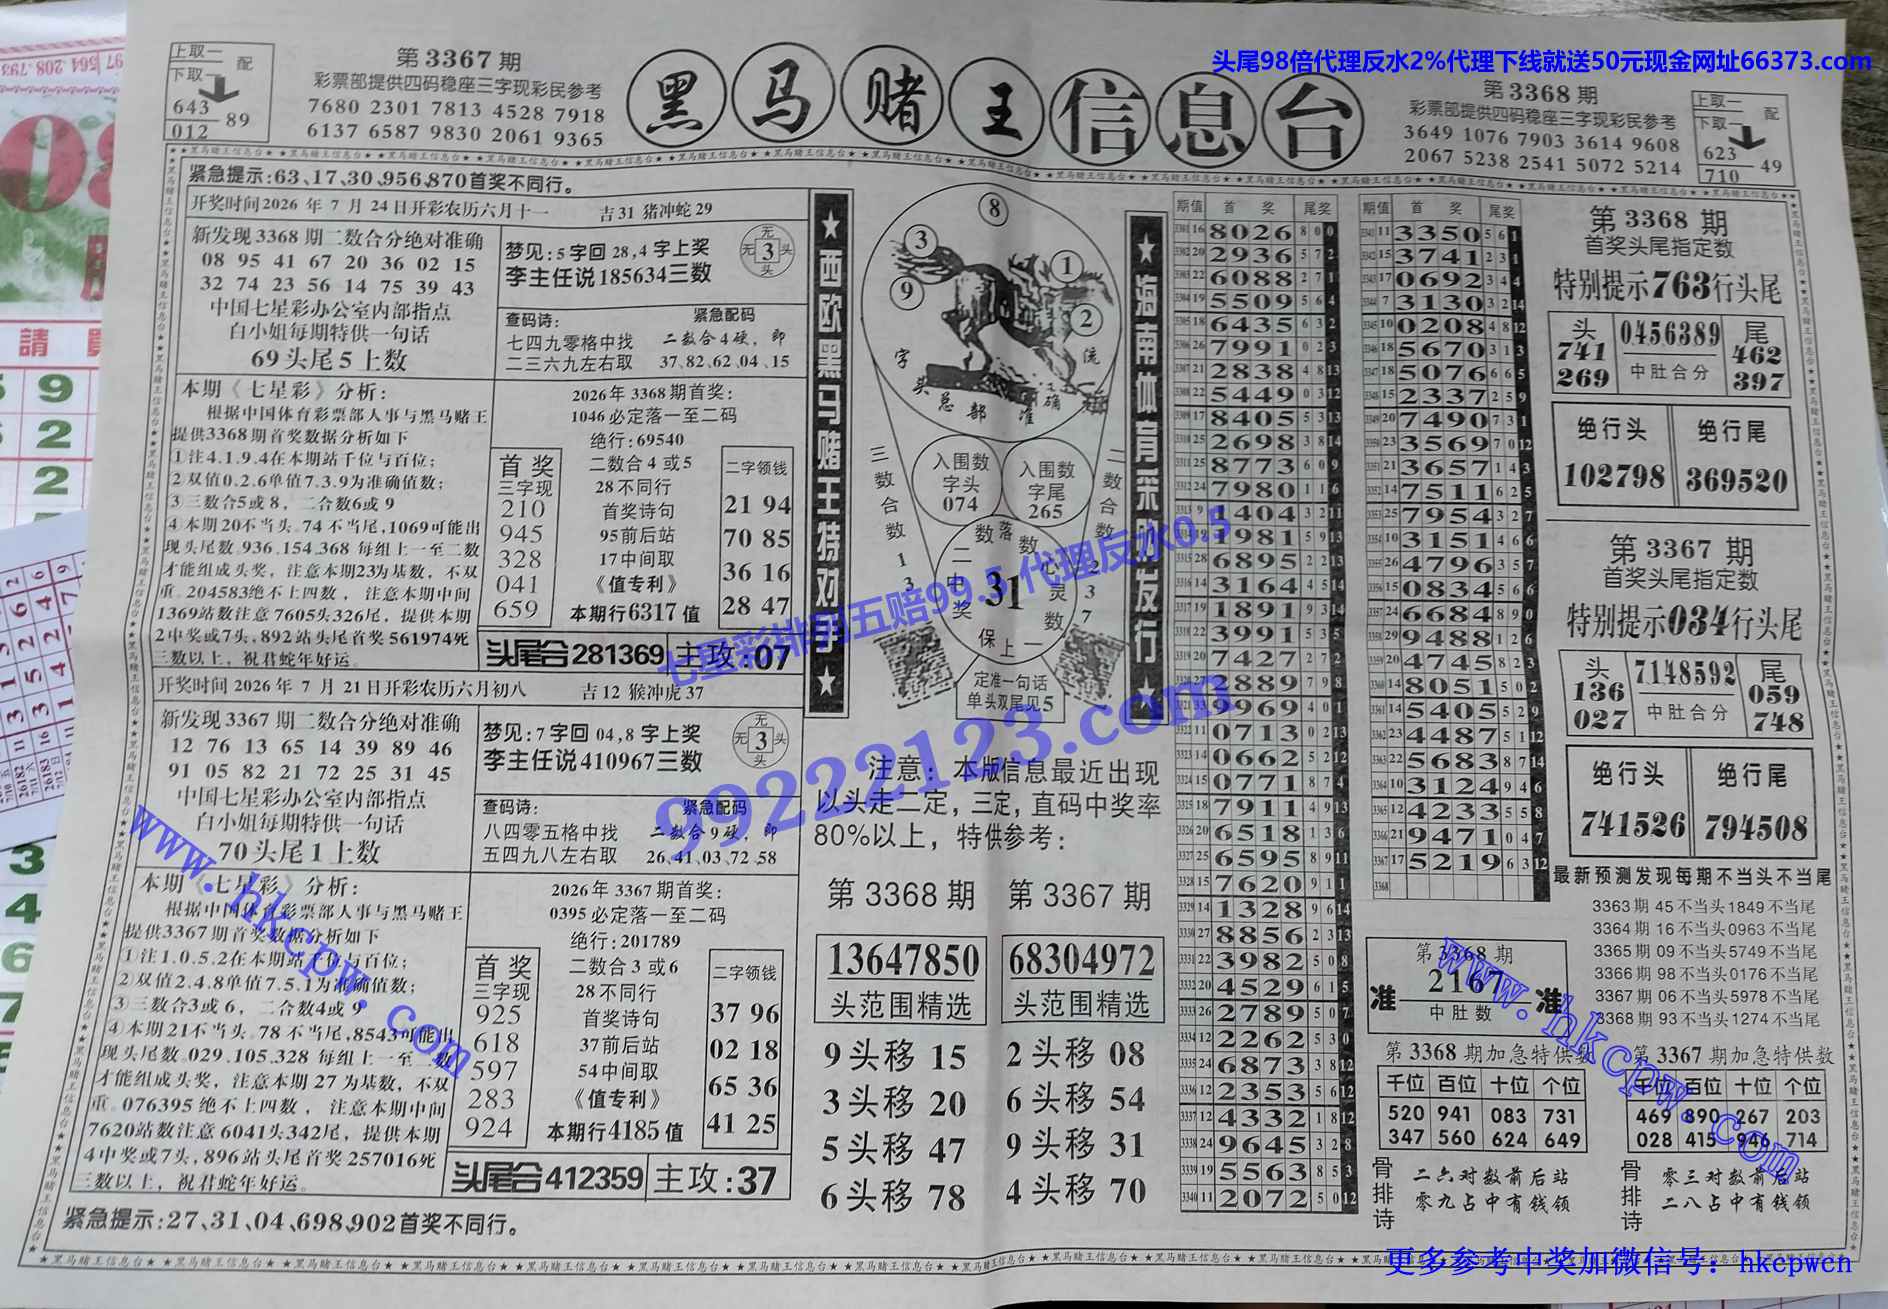 头尾98倍代理反水2%代理下线就送50元现金网址66373.com
黑马赌王信息台
上取一
下取一
配
643
012
89
第3367期
彩票部提供四码稳座三字现彩民参考
7680 2301 7813 4528 7918
6137 6587 9830 2061 9365
第3368期
彩票部提供四码稳座三字现彩民参考
3649 1076 7903 3614 9608
2067 5238 2541 5072 5214
上取一
下取一
配
623
710
49
紧急提示:63、17、30、956、870首奖不同行。
开奖时间2026年7月24日开彩农历六月十一 吉31 猪冲蛇29
新发现3368期二数合分绝对准确
08 95 41 67 20 36 02 15
32 74 23 56 14 75 39 43
中国七星彩办公室内部指点
白小姐每期特供一句话
69头尾5上数
梦见:5字回28,4字上奖
李主任说185634三数
无
无3头
头
查码诗:
七四九零格中找
二三六九左右取
紧急配码
二数合4硬,即
37、82、62、04、15
本期《七星彩》分析:
根据中国体育彩票部人事与黑马赌王
提供3368期首奖数据分析如下
①注4.1.9.4在本期站千位与百位;
②双值0.2.6单值7.3.9为准确值数;
③三数合5或8，二合数6或9
④本期20不当头、74不当尾,1069可能出
现头尾数、936、154、368每组上一至二数
才能组成头奖，注意本期23为基数，不双
重。204583绝不上四数，注意本期中间
1369站数注意7605头326尾，提供本期
2中奖或7头,892站头尾首奖561974死
三数以上，祝君蛇年好运。
2026年3368期首奖:
1046必定落一至二码
绝行:69540
二数合4或5
28不同行
首奖诗句
95前后站
17中间取
《值专利》
本期行6317值
首奖
三字现
210
945
328
041
659
二字领钱
21 94
70 85
36 16
28 47
头尾合281369
主攻:07
开奖时间2026年7月21日开彩农历六月初八 吉12 猴冲虎37
新发现3367期二数合分绝对准确
12 76 13 65 14 39 89 46
91 05 82 21 72 25 31 45
中国七星彩办公室内部指点
白小姐每期特供一句话
70头尾1上数
梦见:7字回04,8字上奖
李主任说410967三数
无
无3头
头
查码诗:
八四零五格中找
五四九八左右取
紧急配码
二数合9硬,即
26、41、03、72、58
本期《七星彩》分析:
根据中国体育彩票部人事与黑马赌王
提供3367期首奖数据分析如下
①注1.0.5.2在本期站千位与百位;
②双值2.4.8单值7.5.1为准确值数;
③三数合3或6，二合数4或9
④本期21不当头、78不当尾,8543可能出
现头尾数、029、105、328每组上一至二数
才能组成头奖，注意本期27为基数，不双
重。076395绝不上四数，注意本期中间
7620站数注意6041头342尾，提供本期
4中奖或7头,896站头尾首奖257016死
三数以上，祝君蛇年好运。
2026年3367期首奖:
0395必定落一至二码
绝行:201789
二数合3或6
28不同行
首奖诗句
37前后站
54中间取
《值专利》
本期行4185值
首奖
三字现
925
618
597
283
924
二字领钱
37 96
02 18
65 36
41 25
头尾合412359
主攻:37
紧急提示:27、31、04、698、902首奖不同行。
★西欧黑马赌王特对
★海南体育采财发行★
8
3
1
9
2
字头总部准确
流
入围数
字头
074
入围数
字尾
265
三数合数13
二数合数237
数落数
二中奖
31
心灵数
保上一
定准一句话
单头双尾见5
注意：本版信息最近出现
以头走二定，三定，直码中奖率
80%以上，特供参考：
第3368期 第3367期
13647850 68304972
头范围精选 头范围精选
9头移15 2头移08
3头移20 6头移54
5头移47 9头移31
6头移78 4头移70
期值 首奖 尾奖
3301 16 8026 8 0 0
3302 20 2936 5 7 2
3303 22 6088 2 7 1
3304 19 5509 5 6 4
3305 18 6435 6 3 2
3306 26 7991 0 2 3
3307 21 2838 4 8 13
3308 22 5449 0 3 12
3309 17 8405 5 3 13
3310 25 2698 3 8 14
3311 25 8773 6 0 9
3312 24 7980 1 1 6
3313 9 1404 3 2 11
1981 5 9 13
3315 28 6895 2 2 13
3316 14 3164 4 5 14
3317 19 1891 9 3 14
3318 22 3991 5 3 5
3319 20 7427 2 7 2
3889 7 9 8
9969 4 0 1
0713 0 2 13
3323 14 0662 5 2 12
3324 15 0771 8 7 4
3325 18 7911 4 9 13
3326 20 6518 1 3 6
3327 25 6595 8 9 11
3328 15 7620 9 1 1
3329 14 1328 9 6 14
3330 27 8856 2 3 13
3331 22 3982 5 0 8
3332 20 4529 6 1 5
3333 26 2789 5 0 7
3334 12 2262 5 3 0
3335 24 6873 3 8 12
3336 12 2353 5 6 12
3337 12 4332 1 8 12
3338 24 9645 3 2 8
3339 19 5563 8 5 3
3340 11 2072 5 0 12
期值 首奖 尾奖
3341 11 3350 5 6 1
3342 15 3741 2 3 1
3343 17 0692 3 4 4
3344 7 3130 3 2 14
3345 10 0208 4 8 12
3346 18 5670 3 1 3
3347 18 5076 6 6 5
3348 15 2337 2 5 9
3349 20 7490 7 3 1
3350 23 3569 7 0 12
3351 21 3657 1 4 3
3352 14 7511 6 2 5
3353 25 7954 3 2 7
3354 10 3151 4 6 6
3355 26 4796 3 5 7
3356 15 0834 5 6 6
3357 24 6684 8 9 0
3358 29 9488 1 2 6
3359 20 4745 8 2 3
3360 14 8051 5 0 2
3361 14 5405 5 2 9
3362 23 4487 5 1 12
3363 22 5683 8 7 14
3364 10 3124 9 4 6
3365 12 4233 5 5 8
3366 21 9471 0 4 7
3367 17 5219 6 3 12
3368
第3368期
准 2167 准
中肚数
第3368期加急特供数
千位 百位 十位 个位
520 941 083 731
347 560 624 649
骨排诗
二六对数前后站
零九占中有钱领
第3367期加急特供数
千位 百位 十位 个位
469 890 267 203
028 415 946 714
骨排诗
零三对数前后站
二八占中有钱领
第3368期
首奖头尾指定数
特别提示763行头尾
头 0456389 尾
741 中肚合分 462
269 397
绝行头 绝行尾
102798 369520
第3367期
首奖头尾指定数
特别提示034行头尾
头 7148592 尾
136 中肚合分 059
027 748
绝行头 绝行尾
741526 794508
最新预测发现每期不当头不当尾
3363期45不当头1849不当尾
3364期16不当头0963不当尾
3365期09不当头5749不当尾
3366期98不当头0176不当尾
3367期06不当头5978不当尾
3368期93不当头1274不当尾
七星彩排列五赔99.5 代理反水0.5
99222123.com
www.hkcpw.com
www.hkcpw.com
更多参考中奖加微信号：hkcpwcn